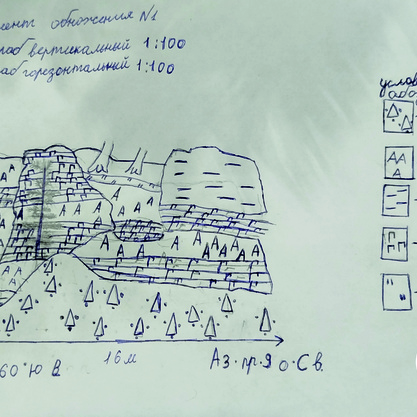 мент обножения №1
таб вертикальний 1:100
таб горезонтальний 1:100
услов
обоз
60°ю В 16м Аз.пр.90 Св.